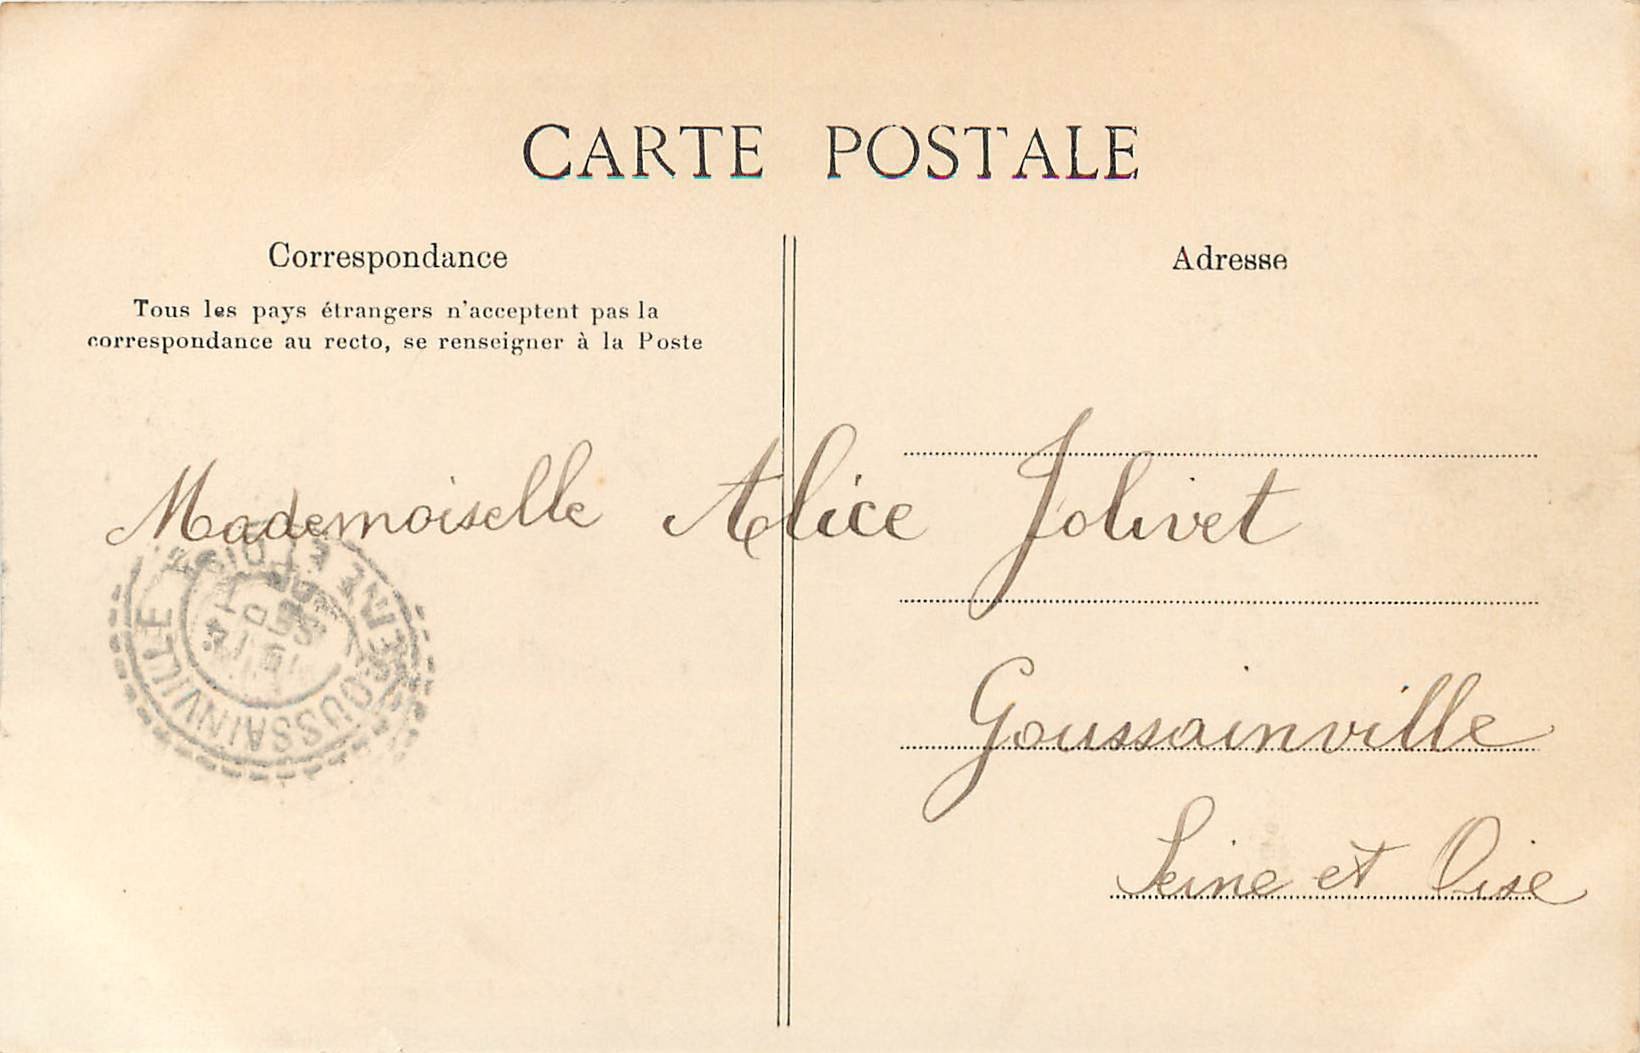 CARTE POSTALE
Correspondance
Tous les pays étrangers n'acceptent pas la
correspondance au recto, se renseigner à la Poste
Adresse
Mademoiselle Alice Jolivet
Goussainville
Seine et Oise
GOUSSAINVILLE
SEINE ET OISE